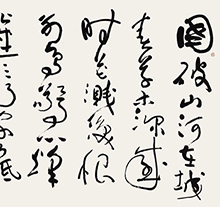 國破山河在城
春草木深感
时花濺淚恨
别鸟驚心烽
火連三月家書抵